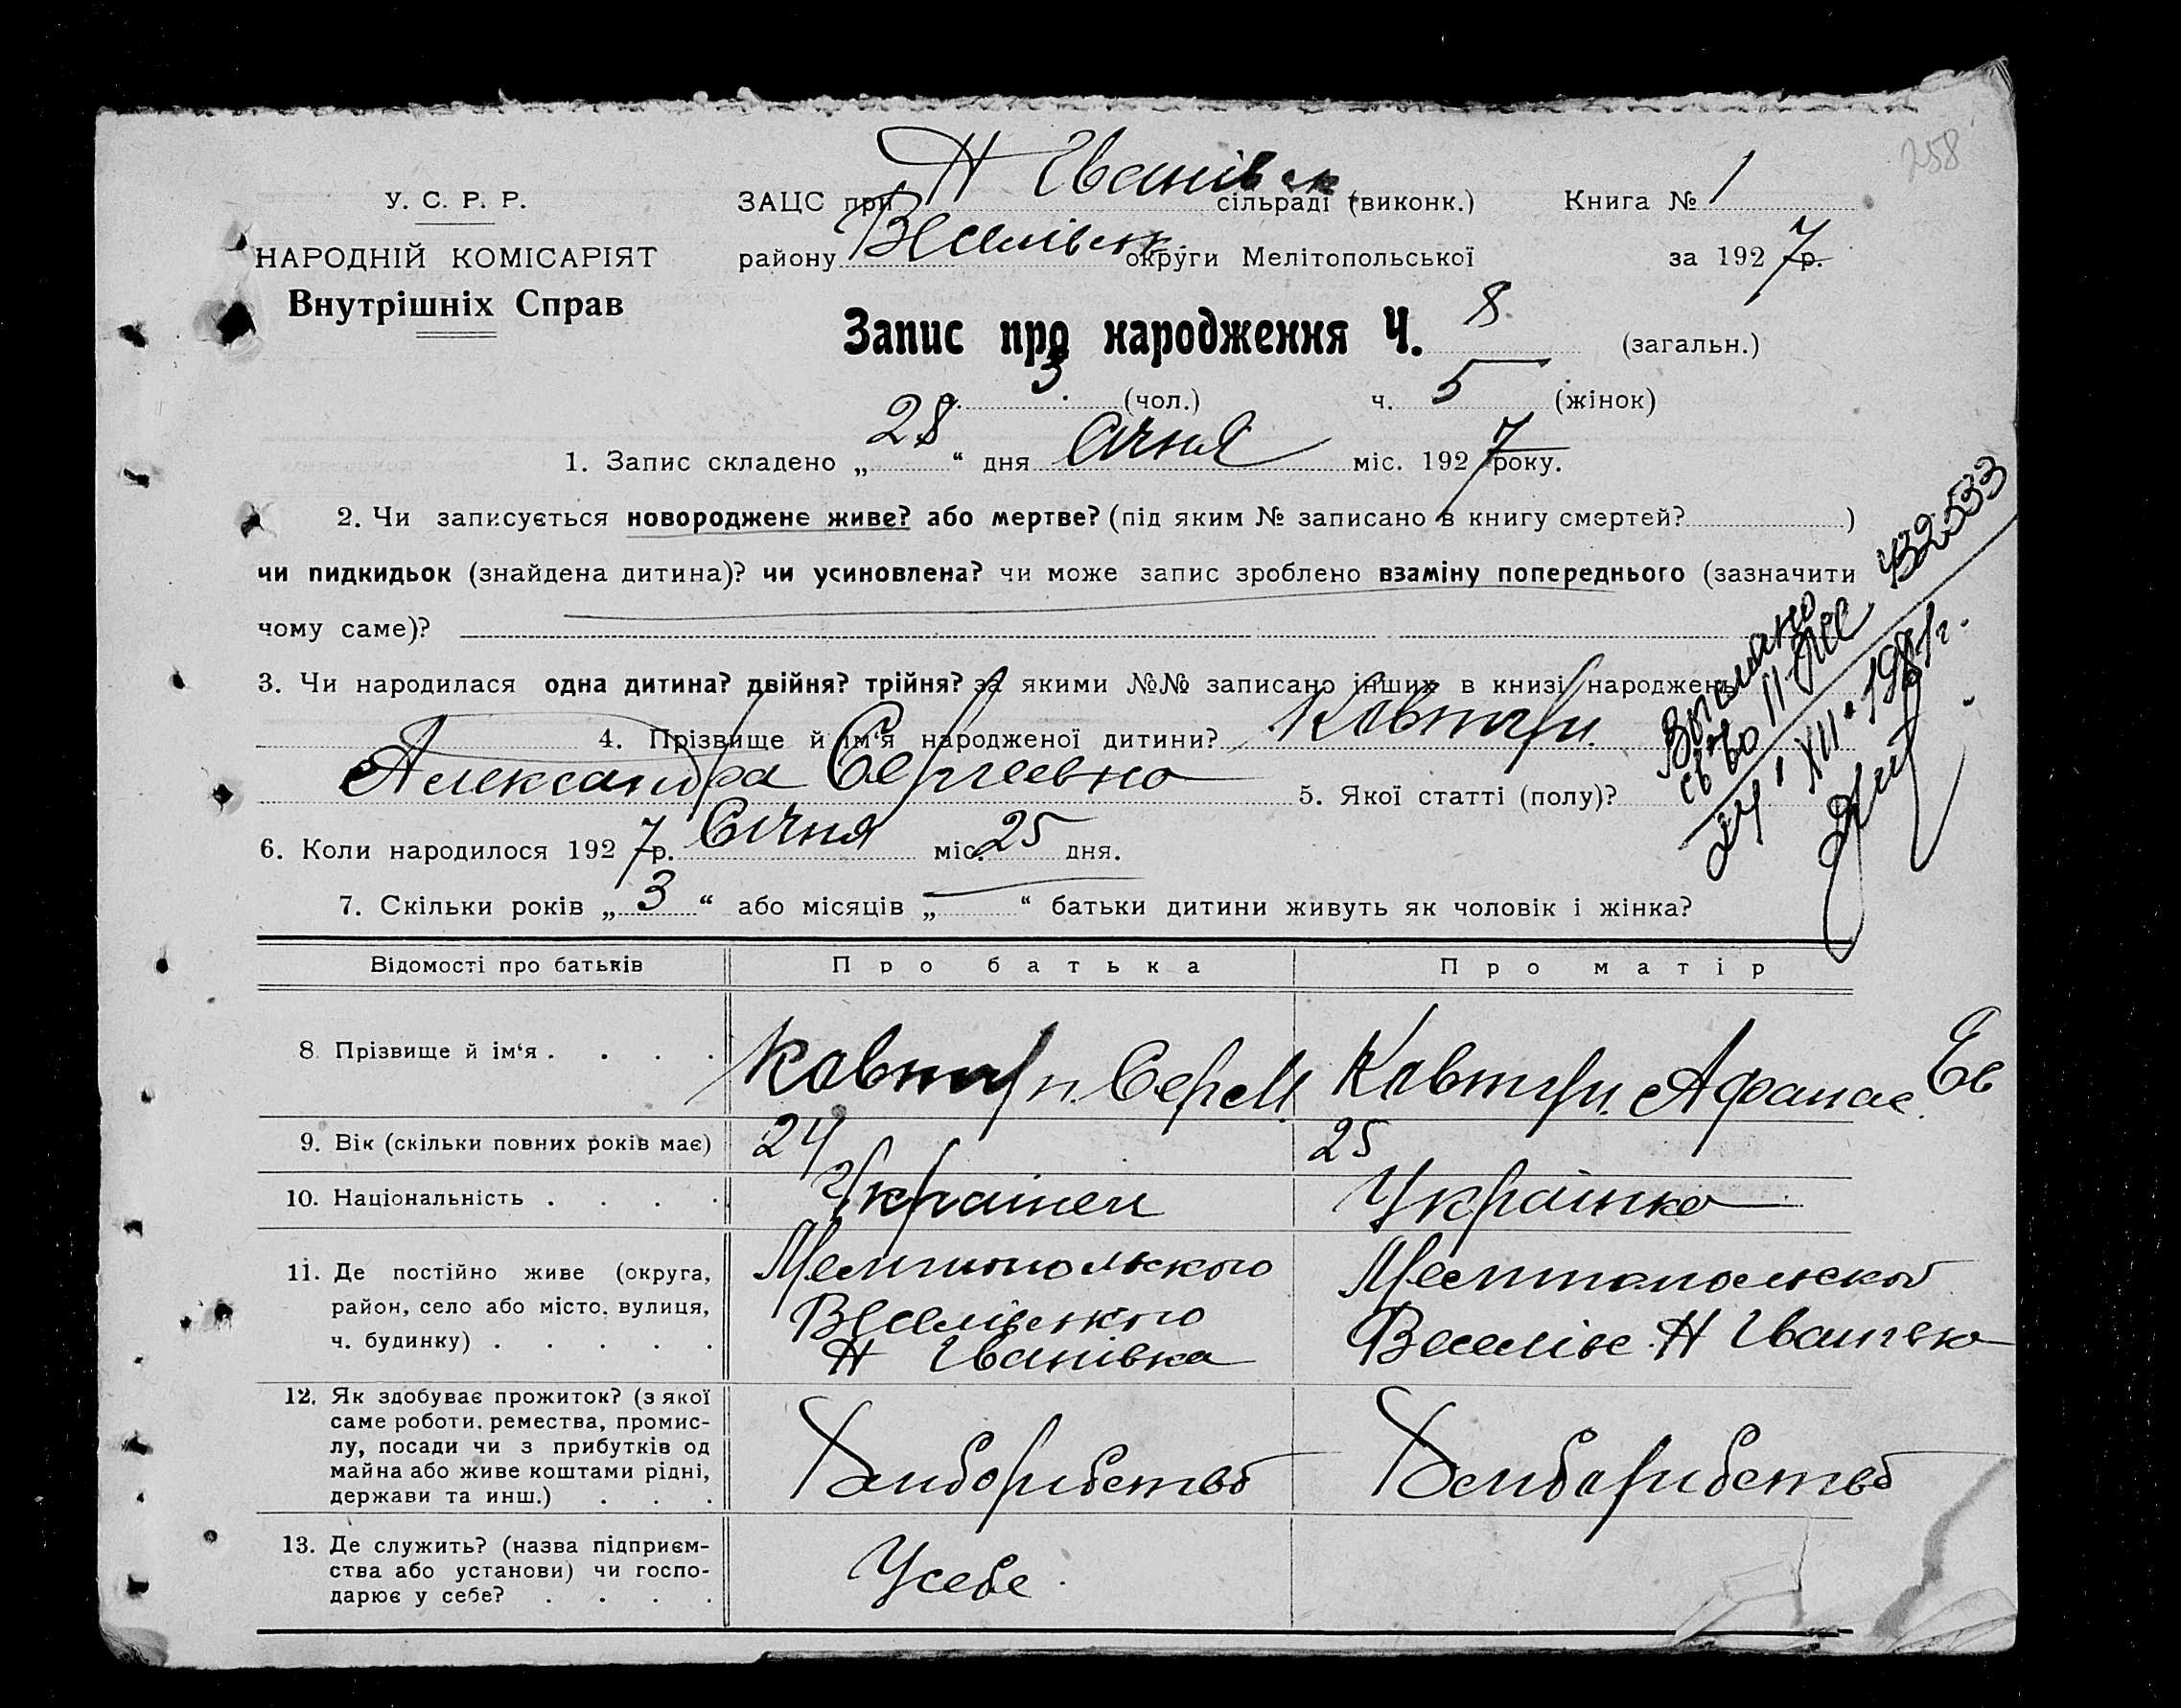 258
У. С. Р. Р.
НАРОДНІЙ КОМІСАРІЯТ
Внутрішніх Справ
ЗАЦС при Н Іванівск сільраді (виконк.) Книга № 1
району Веселівск округи Мелітопольської за 1927 р.
Запис про народження Ч. 8 (загальн.)
ч. 3 (чол.) ч. 5 (жінок)
1. Запис складено „28“ дня Січня міс. 1927 року.
2. Чи записується новороджене живе? або мертве? (під яким № записано в книгу смертей? )
чи пидкидьок (знайдена дитина)? чи усиновлена? чи може запис зроблено взаміну попереднього (зазначити
чому саме)?
3. Чи народилася одна дитина? двійня? трійня? за якими №№ записано інших в книзі народжень
4. Прізвище й ім‘я народженої дитини?
Александра Сергеевна 5. Якої статті (полу)?
6. Коли народилося 1927 р. Січня міс. 25 дня.
7. Скільки років „3“ або місяців „ “ батьки дитини живуть як чоловік і жінка?
св во 432533
Відомості про батьків Про батька Про матір
8. Прізвище й ім‘я Афанас. Ев
9. Вік (скільки повних років має) 24 25
10. Національність Українец Українка
11. Де постійно живе (округа, район, село або місто, вулиця, ч. будинку)
Мелитопольского
Веселівського
Н Іванівка
Мелитопольской
Веселівс. Н Іванівка
12. Як здобуває прожиток? (з якої саме роботи, ремества, промислу, посади чи з прибутків од майна або живе коштами рідні, держави та инш.) Хлиборибство Хлибарибство
13. Де служить? (назва підприємства або установи) чи господарює у себе? Усебе